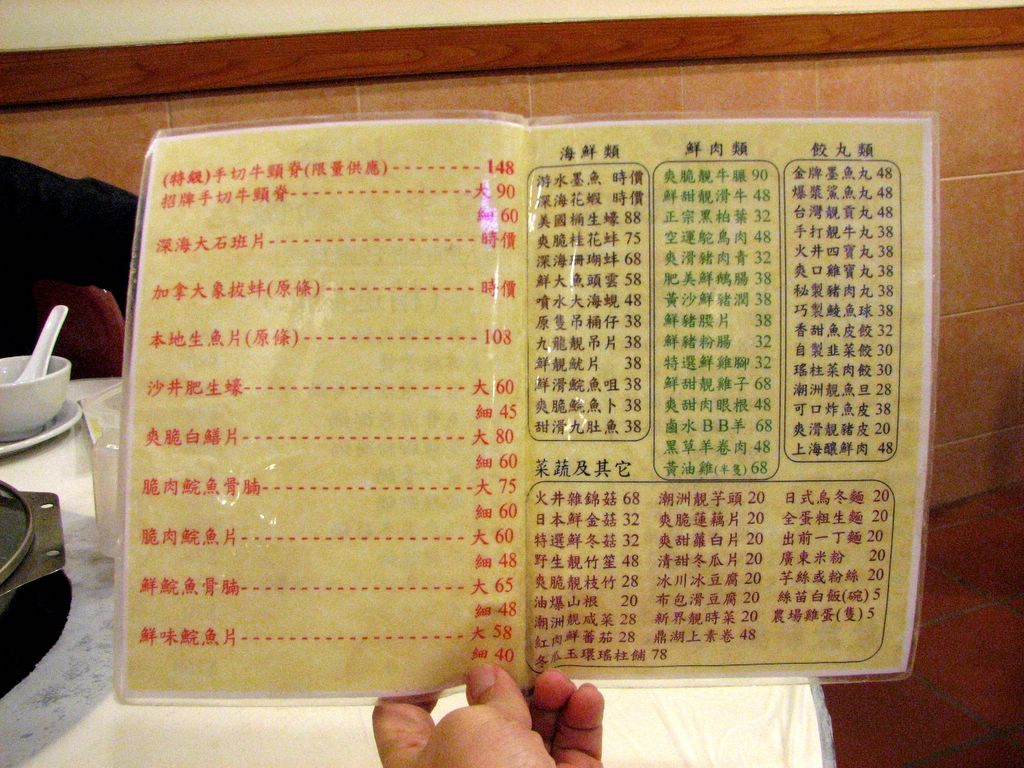 (特級)手切牛頸脊(限量供應)---------148
招牌手切牛頸脊------------------大 90
細 60
深海大石班片--------------------時價
加拿大象拔蚌(原條)---------------時價
本地生魚片(原條)-----------------108
沙井肥生蠔----------------------大 60
細 45
爽脆白鱔片----------------------大 80
細 60
脆肉鯇魚骨腩--------------------大 75
細 60
脆肉鯇魚片----------------------大 60
細 48
鮮鯇魚骨腩----------------------大 65
細 48
鮮味鯇魚片----------------------大 58
細 40
海鮮類
游水墨魚 時價
深海花蝦 時價
美國桶生蠔 88
爽脆桂花蚌 75
深海珊瑚蚌 68
鮮大魚頭雲 58
噴水大海蜆 48
原隻吊桶仔 38
九龍靚吊片 38
鮮靚魷片 38
鮮滑鯇魚咀 38
爽脆鯇魚卜 38
甜滑九肚魚 38
鮮肉類
爽脆靚牛𦟌 90
鮮甜靚滑牛 48
正宗黑柏葉 32
空運鴕鳥肉 48
爽滑豬肉青 32
肥美鮮鵝腸 38
黃沙鮮豬潤 38
鮮豬腰片 38
鮮豬粉腸 32
特選鮮雞腳 32
鮮甜靚雞子 68
爽甜肉眼根 48
鹵水BB羊 68
黑草羊卷肉 48
黃油雞(半隻) 68
餃丸類
金牌墨魚丸 48
爆漿鯊魚丸 48
台灣靚貢丸 48
手打靚牛丸 38
火井四寶丸 38
爽口雞寶丸 38
秘製豬肉丸 38
巧製鯪魚球 38
香甜魚皮餃 32
自製韭菜餃 30
瑤柱菜肉餃 30
潮洲靚魚旦 28
可口炸魚皮 38
爽滑靚豬皮 20
上海釀鮮肉 48
菜蔬及其它
火井雜錦菇 68
日本鮮金菇 32
特選鮮冬菇 32
野生靚竹笙 48
爽脆靚枝竹 28
油爆山根 20
潮洲靚咸菜 28
紅肉鮮蕃茄 28
冬瓜玉環瑤柱脯 78
潮洲靚芋頭 20
爽脆蓮藕片 20
爽甜蘿白片 20
清甜冬瓜片 20
冰川冰豆腐 20
布包滑豆腐 20
新界靚時菜 20
鼎湖上素卷 48
日式烏冬麵 20
全蛋粗生麵 20
出前一丁麵 20
廣東米粉 20
芋絲或粉絲 20
絲苗白飯(碗) 5
農場雞蛋(隻) 5